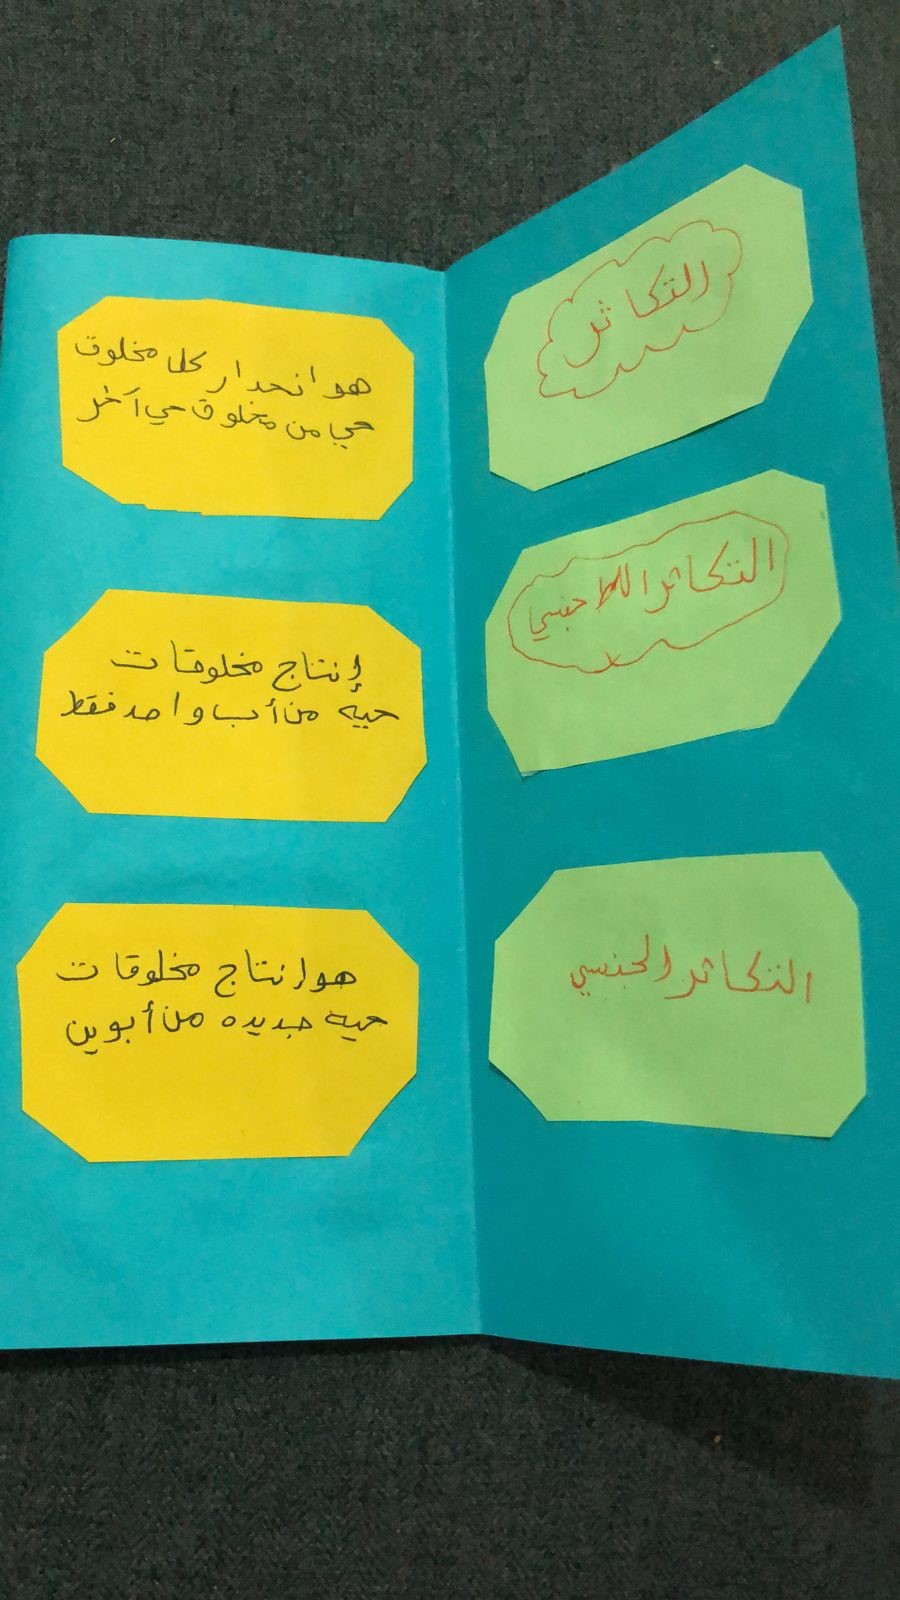 التكاثر
هو انحدار كل مخلوق
حي من مخلوق حي آخر
التكاثر اللاجنسي
إنتاج مخلوقات
حيه من أب واحد فقط
التكاثر الجنسي
هو إنتاج مخلوقات
حيه جديده من أبوين